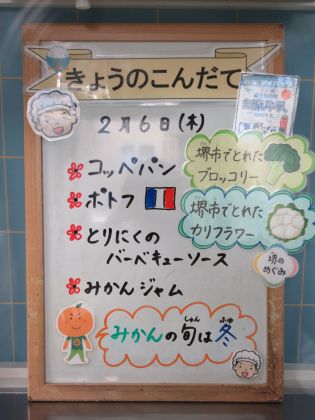 きょうのこんだて
2月6日(木)
堺市でとれた
ブロッコリー
堺市でとれた
カリフラワー
堺の
めぐみ
コッペパン
ポトフ
とりにくの
バーベキューソース
みかんジャム
しゅん ふゆ
みかんの旬は冬